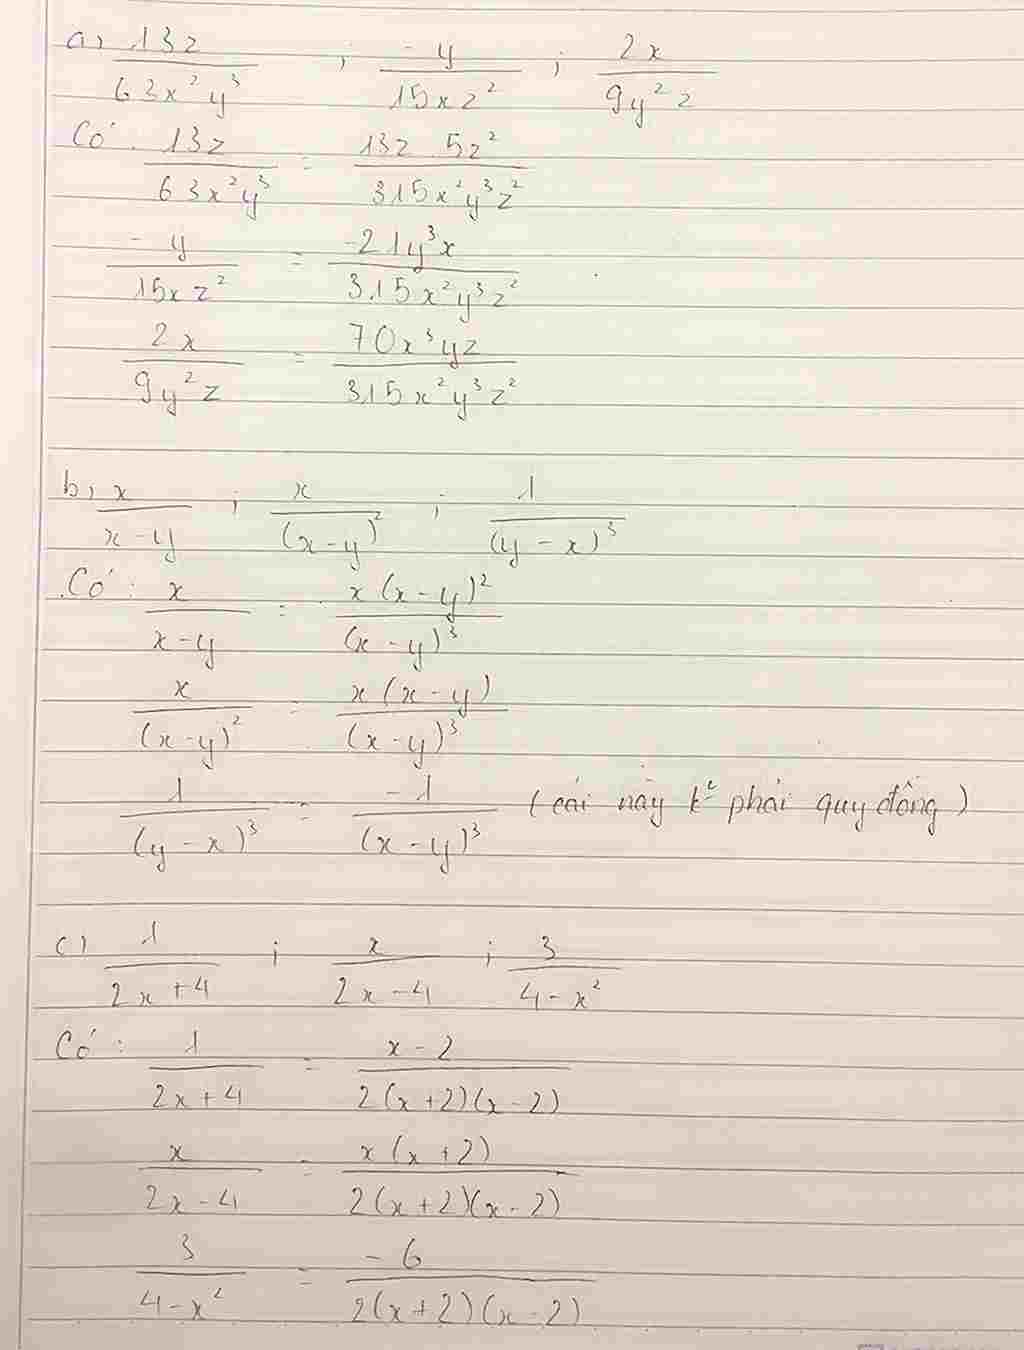 a, 13z/63x²y³ ; -y/15xz² ; 2x/9y²z
Có: 13z/63x²y³ = 13z . 5z²/315x²y³z²
-y/15xz² = -21y³x/315x²y³z²
2x/9y²z = 70x³yz/315x²y³z²
b, x/x-y ; x/(x-y)² ; 1/(y-x)³
Có: x/x-y = x(x-y)²/(x-y)³
x/(x-y)² = x(x-y)/(x-y)³
1/(y-x)³ = -1/(x-y)³ (cái này phải quy đồng)
c, 1/2x+4 ; x/2x-4 ; 3/4-x²
Có: 1/2x+4 = x-2/2(x+2)(x-2)
x/2x-4 = x(x+2)/2(x+2)(x-2)
3/4-x² = -6/2(x+2)(x-2)